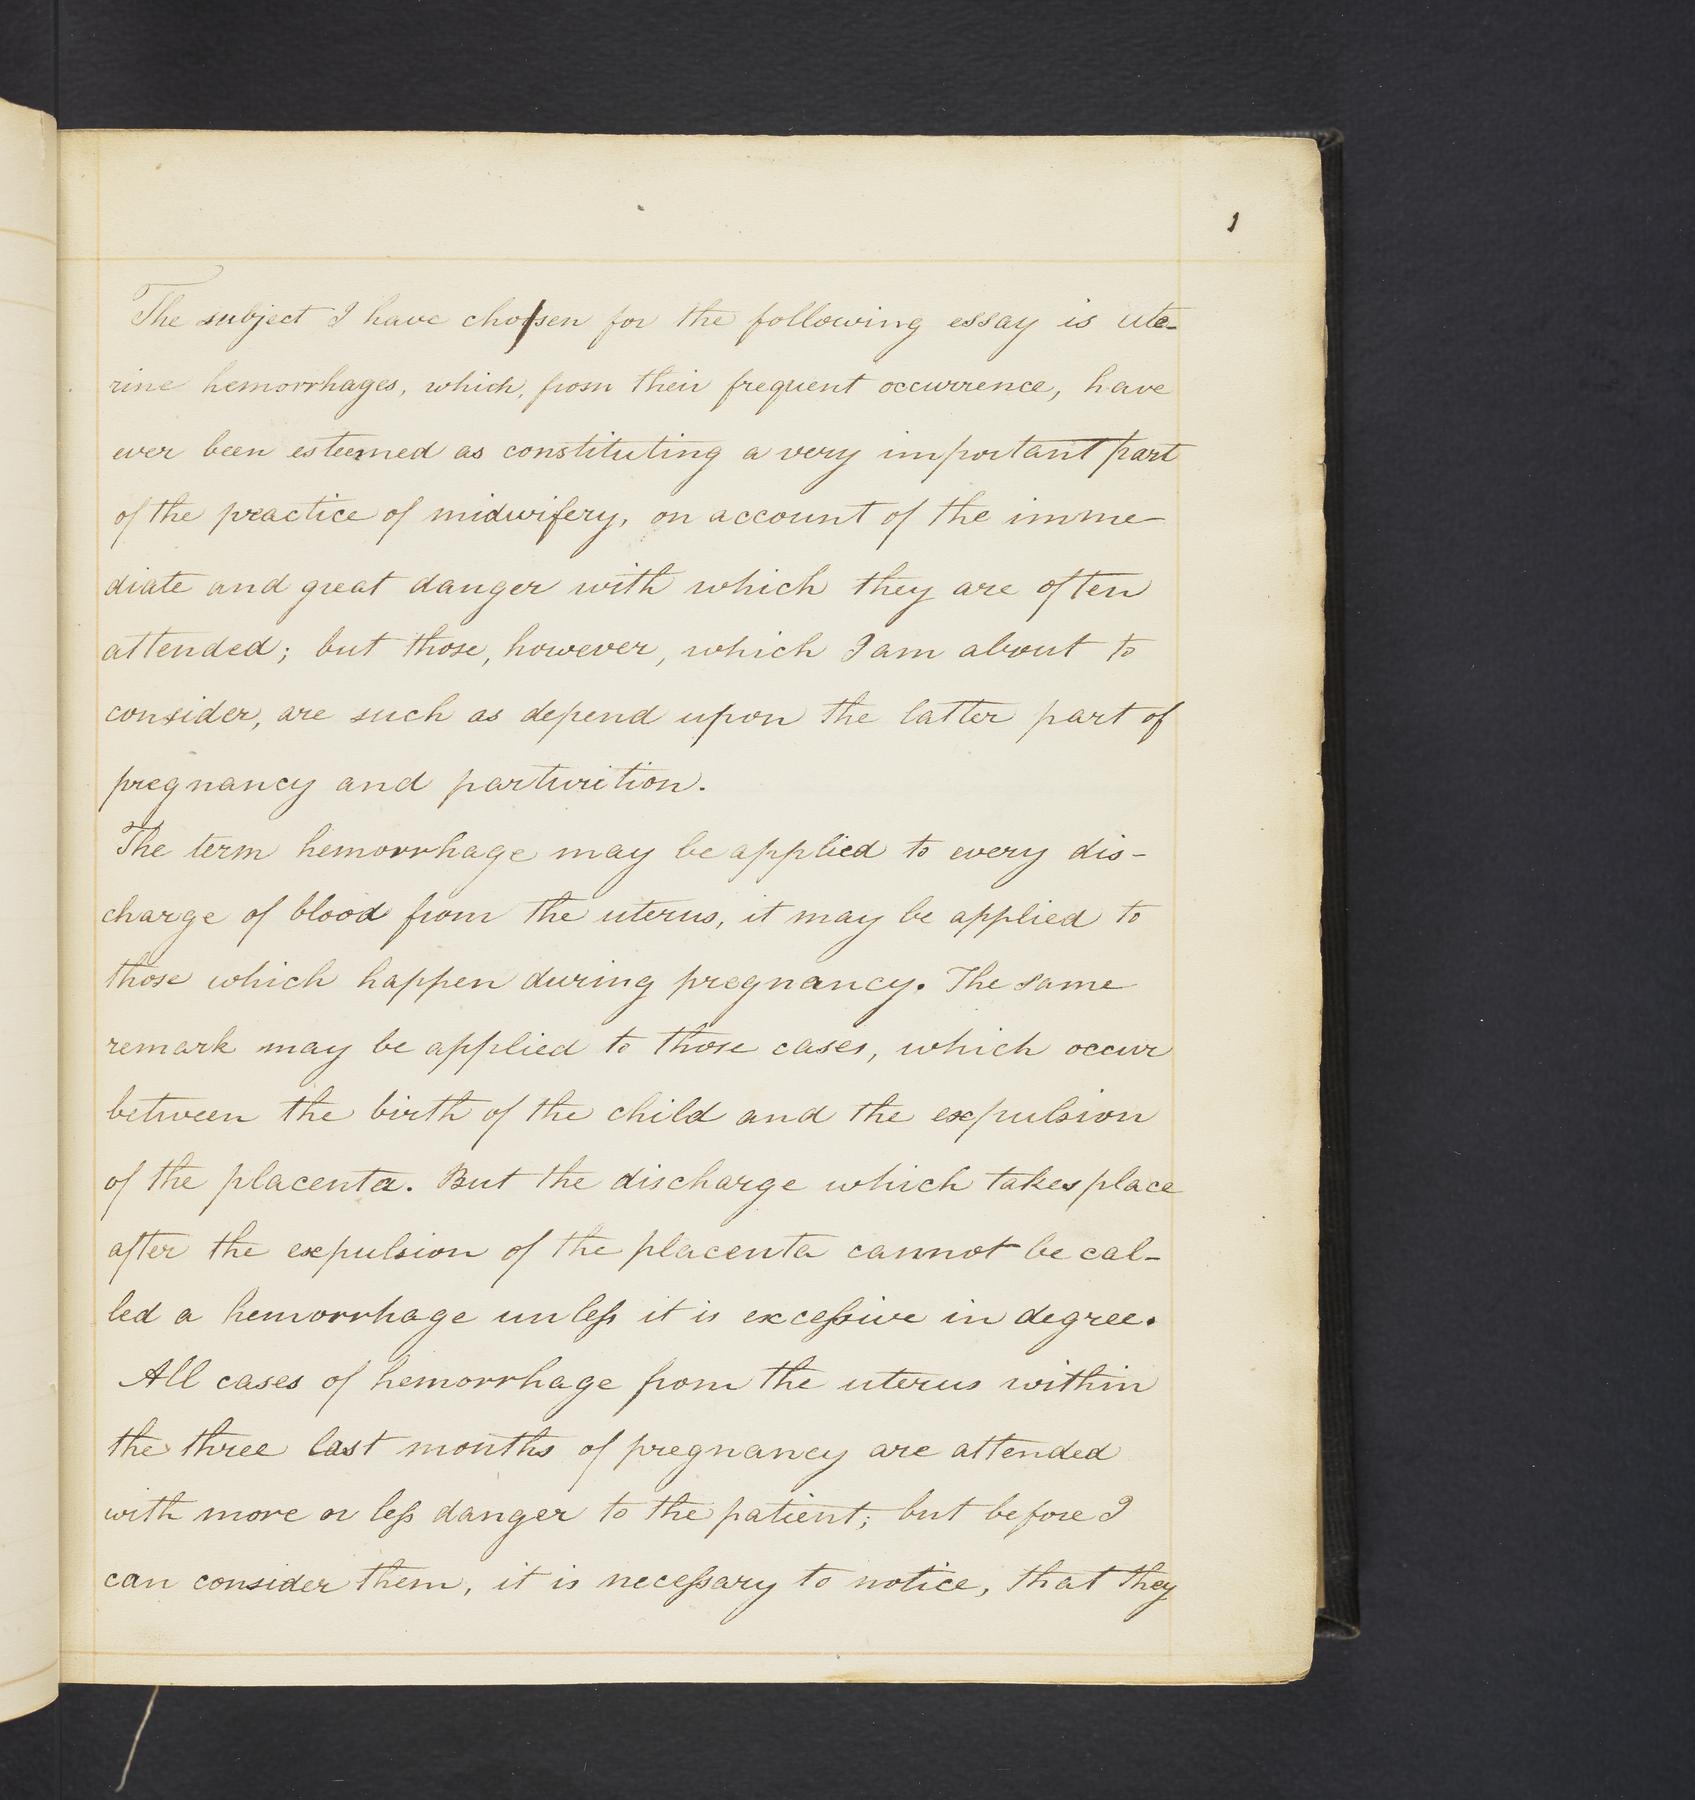 1
The subject I have chosen for the following essay is ute-
rine hemorrhages, which, from their frequent occurrence, have
ever been esteemed as constituting a very important part
of the practice of midwifery, on account of the imme-
diate and great danger with which they are often
attended; but those, however, which I am about to
consider, are such as depend upon the latter part of
pregnancy and parturition.
The term hemorrhage may be applied to every dis-
charge of blood from the uterus, it may be applied to
those which happen during pregnancy. The same
remark may be applied to those cases, which occur
between the birth of the child and the expulsion
of the placenta. But the discharge which takes place
after the expulsion of the placenta cannot be cal-
led a hemorrhage unleſs it is exceſsive in degree.
All cases of hemorrhage from the uterus within
the three last months of pregnancy are attended
with more or leſs danger to the patient; but before I
can consider them, it is neceſsary to notice, that they